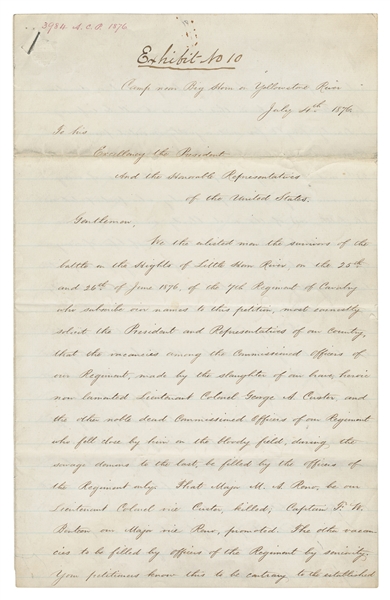 3984 A.C.P. 1876
Exhibit No 10
Camp near Big Horn on Yellowstone River
July 4th 1876
To his
Excellency the President
And the Honorable Representatives
of the United States.
Gentlemen.
We the enlisted men the survivors of the
battle on the Heights of Little Horn River, on the 25th
and 26th of June 1876, of the 7th Regiment of Cavalry
who subscribe our names to this petition, most earnestly
solicit the President and Representatives of our Country,
that the vacancies among the Commissioned Officers of
our Regiment, made by the slaughter of our brave, heroic
now lamented Lieutenant Colonel George A Custer, and
the other noble dead Commissioned Officers of our Regiment
who fell close by him on the bloody field, daring the
savage demons to the last, be filled by the officers of
the Regiment only. That Major M. A Reno, be our
Lieutenant Colonel vice Custer, killed; Captain F. W.
Benteen our Major vice Reno, promoted. The other vacan-
cies to be filled by officers of the Regiment by seniority,
Your petitioners know this to be contrary to the established